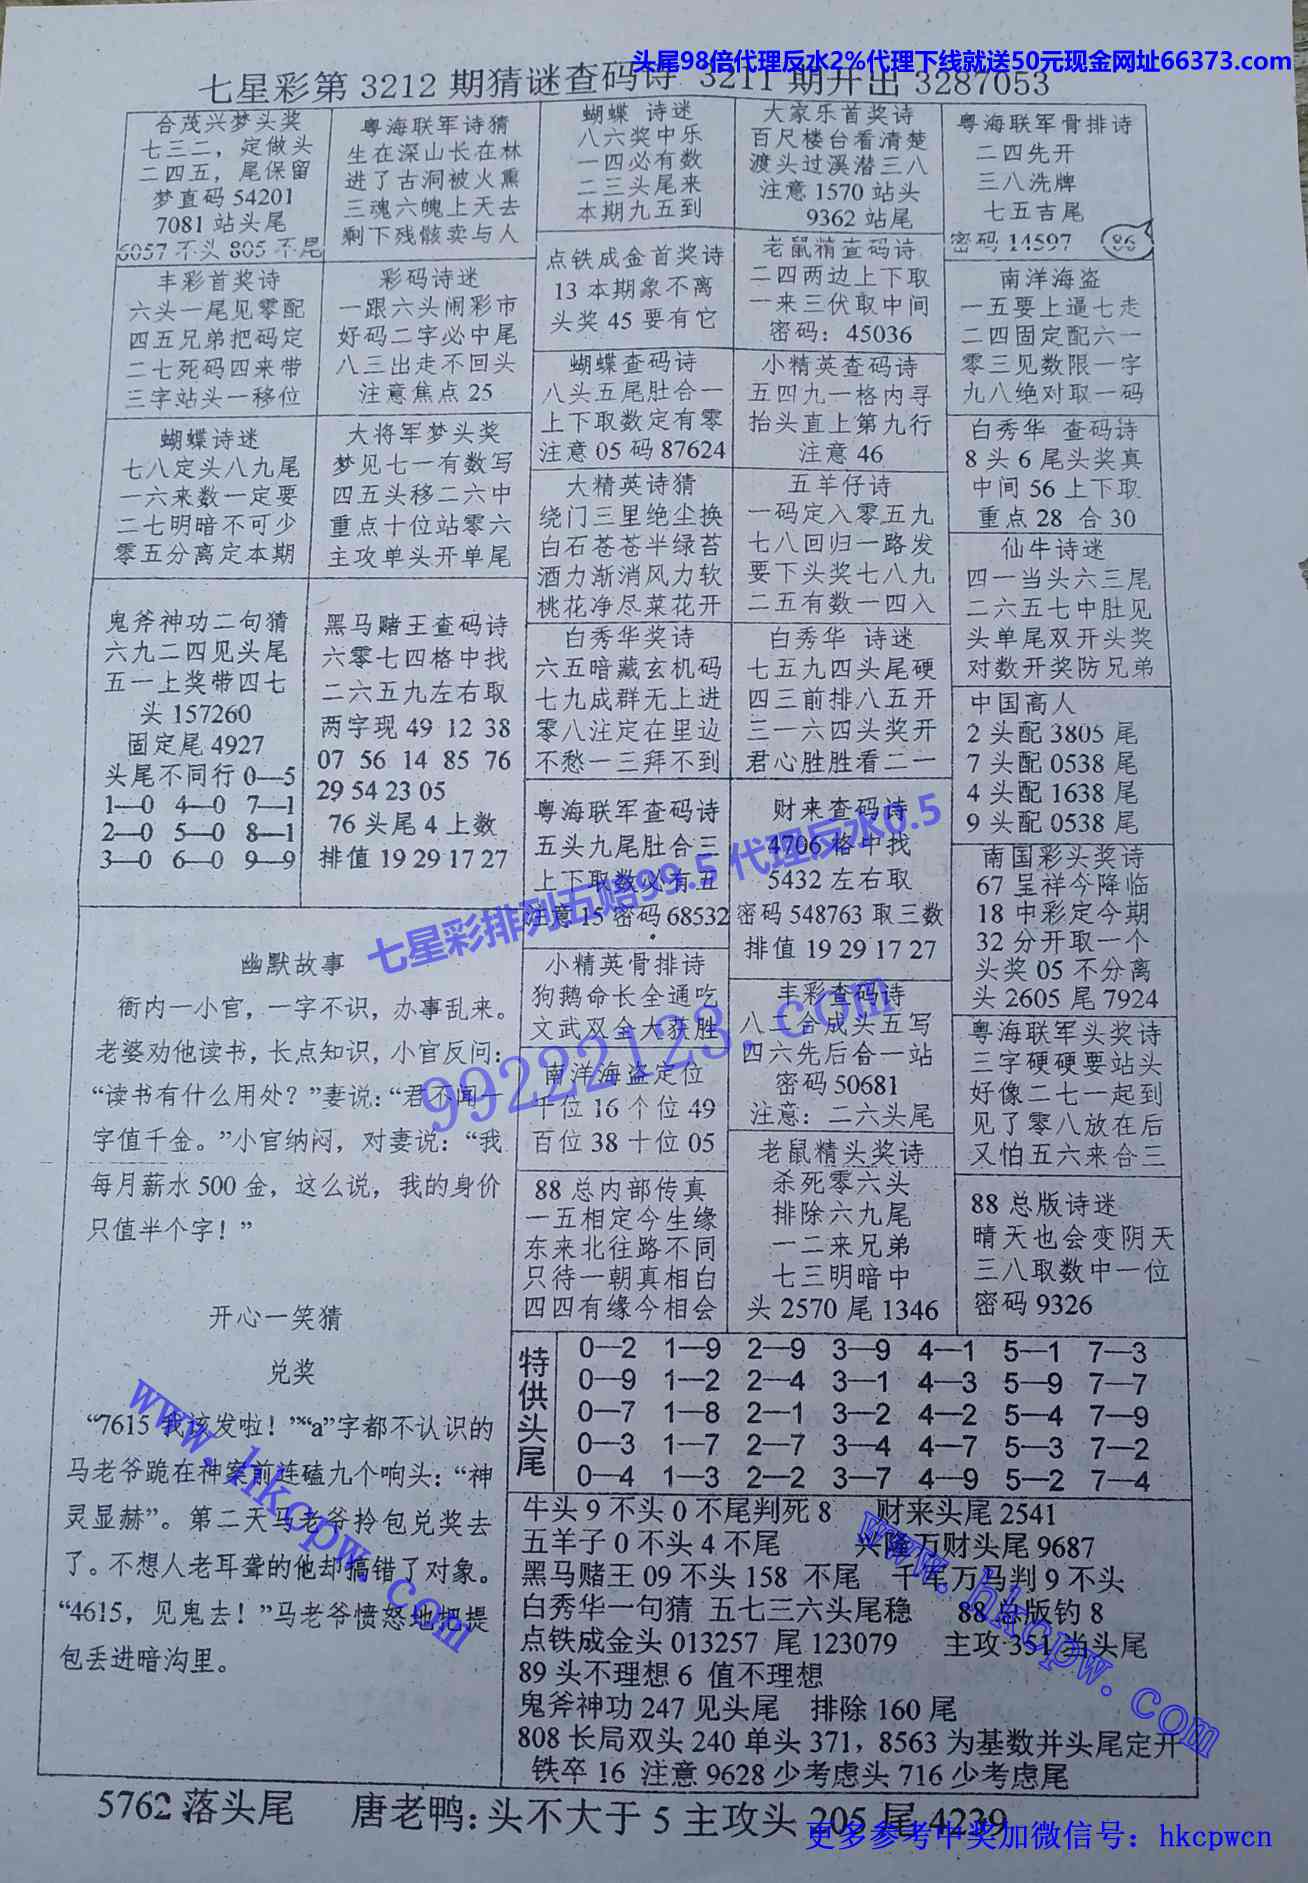 头尾98倍代理反水2%代理下线就送50元现金网址66373.com
七星彩第3212期猜谜查码诗 3211期开出3287053
合茂兴梦头奖
七三二，定做头
二四五，尾保留
梦直码54201
7081站头尾
6057不头805不尾
粤海联军诗猜
生在深山长在林
进了古洞被火熏
三魂六魄上天去
剩下残骸卖与人
蝴蝶 诗迷
八六奖中乐
一四必有数
二三头尾来
本期九五到
大家乐首奖诗
百尺楼台看清楚
渡头过溪潜三八
注意1570站头
9362站尾
粤海联军骨排诗
二四先开
三八洗牌
七五吉尾
密码14597 86
丰彩首奖诗
六头一尾见零配
四五兄弟把码定
二七死码四来带
三字站头一移位
彩码诗迷
一跟六头闹彩市
好码二字必中尾
八三出走不回头
注意焦点25
点铁成金首奖诗
13本期象不离
头奖45要有它
老鼠精查码诗
二四两边上下取
一来三伏取中间
密码：45036
南洋海盗
一五要上逼七走
二四固定配六一
零三见数限一字
九八绝对取一码
蝴蝶诗迷
七八定头八九尾
一六来数一定要
二七明暗不可少
零五分离定本期
大将军梦头奖
梦见七一有数写
四五头移二六中
重点十位站零六
主攻单头开单尾
蝴蝶查码诗
八头五尾肚合一
上下取数定有零
注意05码87624
小精英查码诗
五四九一格内寻
抬头直上第九行
注意46
白秀华 查码诗
8头6尾头奖真
中间56上下取
重点28 合30
大精英诗猜
绕门三里绝尘换
白石苍苍半绿苔
酒力渐消风力软
桃花净尽菜花开
五羊仔诗
一码定入零五九
七八回归一路发
要下头奖七八九
二五有数一四入
仙牛诗迷
四一当头六三尾
二六五七中肚见
头单尾双开头奖
对数开奖防兄弟
鬼斧神功二句猜
六九二四见头尾
五一上奖带四七
头157260
固定尾4927
头尾不同行0—5
1—0 4—0 7—1
2—0 5—0 8—1
3—0 6—0 9—9
黑马赌王查码诗
六零七四格中找
二六五九左右取
两字现49 12 38
07 56 14 85 76
29 54 23 05
76头尾4上数
排值19 29 17 27
白秀华奖诗
六五暗藏玄机码
七九成群无上进
零八注定在里边
不愁一三拜不到
白秀华 诗迷
七五九四头尾硬
四三前排八五开
三一六四头奖开
君心胜胜看二一
中国高人
2头配3805尾
7头配0538尾
4头配1638尾
9头配0538尾
粤海联军查码诗
五头九尾肚合三
上下取数必有五
注意15密码68532
财来查码诗
4706格中找
5432左右取
密码548763取三数
排值19 29 17 27
南国彩头奖诗
67呈祥今降临
18中彩定今期
32分开取一个
头奖05不分离
头2605尾7924
七星彩排列五赔99.5 代理反水0.5
99222123.com
幽默故事
衙内一小官，一字不识，办事乱来。
老婆劝他读书，长点知识，小官反问：
“读书有什么用处？”妻说：“君不闻一
字值千金。”小官纳闷，对妻说：“我
每月薪水500金，这么说，我的身价
只值半个字！”
小精英骨排诗
狗鹅命长全通吃
文武双全大获胜
南洋海盗定位
千位16个位49
百位38十位05
丰彩查码诗
八二合成头五写
四六先后合一站
密码50681
注意：二六头尾
粤海联军头奖诗
三字硬硬要站头
好像二七一起到
见了零八放在后
又怕五六来合三
88总内部传真
一五相定今生缘
东来北往路不同
只待一朝真相白
四四有缘今相会
老鼠精头奖诗
杀死零六头
排除六九尾
一二来兄弟
七三明暗中
头2570尾1346
88总版诗迷
晴天也会变阴天
三八取数中一位
密码9326
开心一笑猜
兑奖
“7615我该发啦！”“a”字都不认识的
马老爷跪在神案前连磕九个响头：“神
灵显赫”。第二天马老爷拎包兑奖去
了。不想人老耳聋的他却搞错了对象。
“4615，见鬼去！”马老爷愤怒地把提
包丢进暗沟里。
www.hkcpw.com
特供头尾
0—2 1—9 2—9 3—9 4—1 5—1 7—3
0—9 1—2 2—4 3—1 4—3 5—9 7—7
0—7 1—8 2—1 3—2 4—2 5—4 7—9
0—3 1—7 2—7 3—4 4—7 5—3 7—2
0—4 1—3 2—2 3—7 4—9 5—2 7—4
牛头9不头0不尾判死8 财来头尾2541
五羊子0不头4不尾 兴隆万财头尾9687
黑马赌王09不头158 不尾 千军万马判9不头
白秀华一句猜 五七三六头尾稳 88总版钓8
点铁成金头013257 尾123079 主攻351当头尾
89头不理想6 值不理想
鬼斧神功247见头尾 排除160尾
808长局双头240单头371，8563为基数并头尾定开
铁卒16 注意9628少考虑头716少考虑尾
www.hkcpw.com
5762落头尾 唐老鸭：头不大于5主攻头205尾4239
更多参考中奖加微信号：hkcpwcn